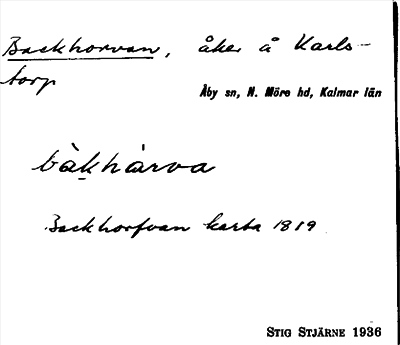 Backhorvan, åker å Karls-
torp
Åby sn, N. Möre hd, Kalmar län
bàkhàrva
Backhorfvan karta 1819
STIG STJÄRNE 1936